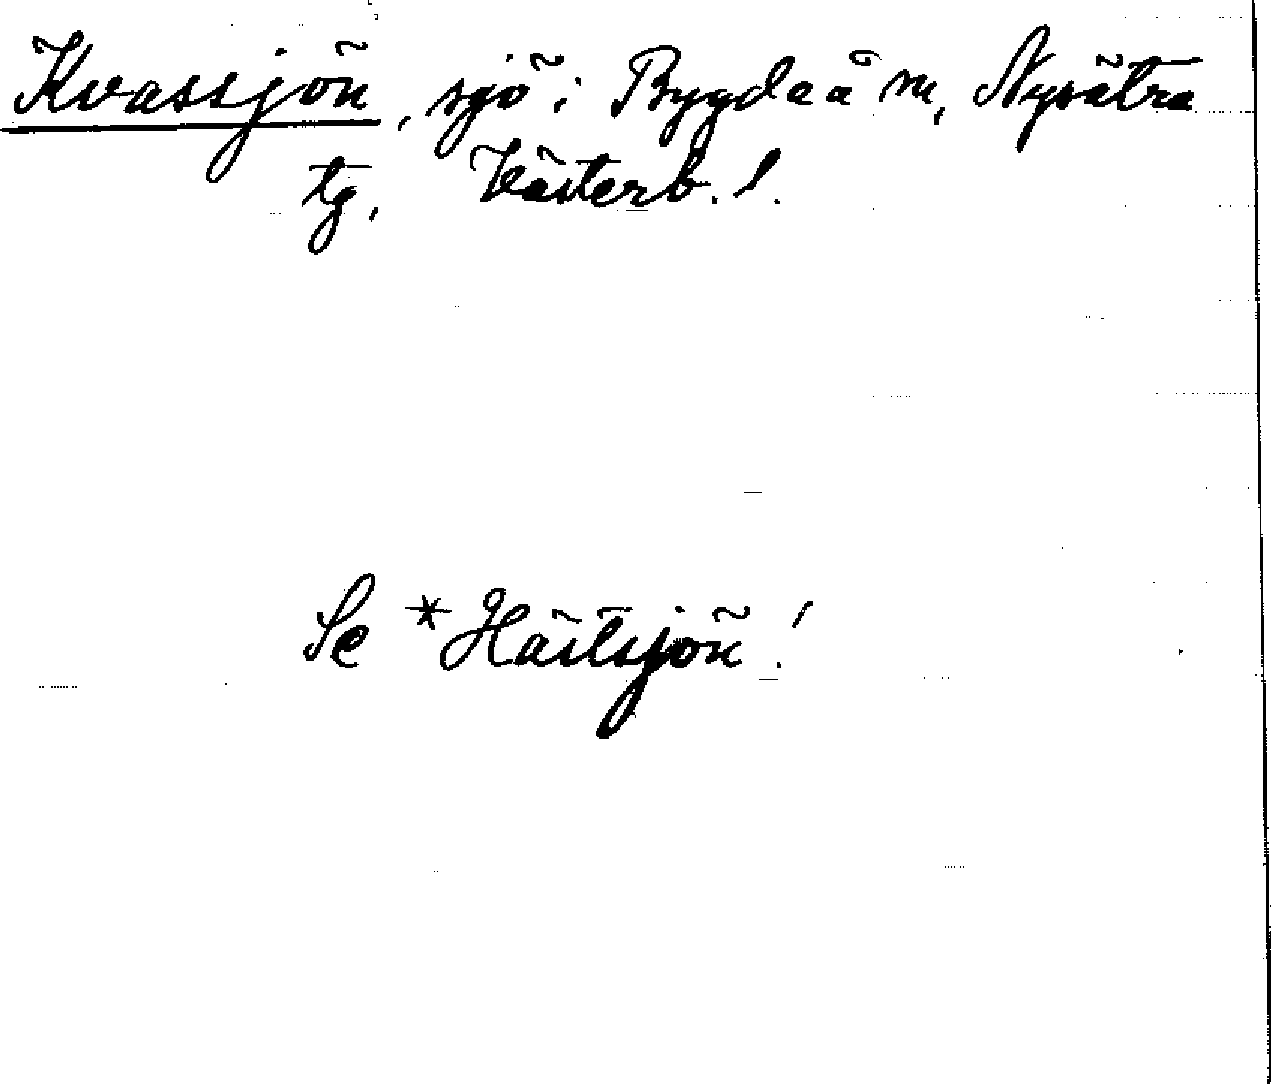 Kvassjön, sjö i Bygdeå sn, Nysätra
tg, Västerb. l.
Se *Hästsjön!